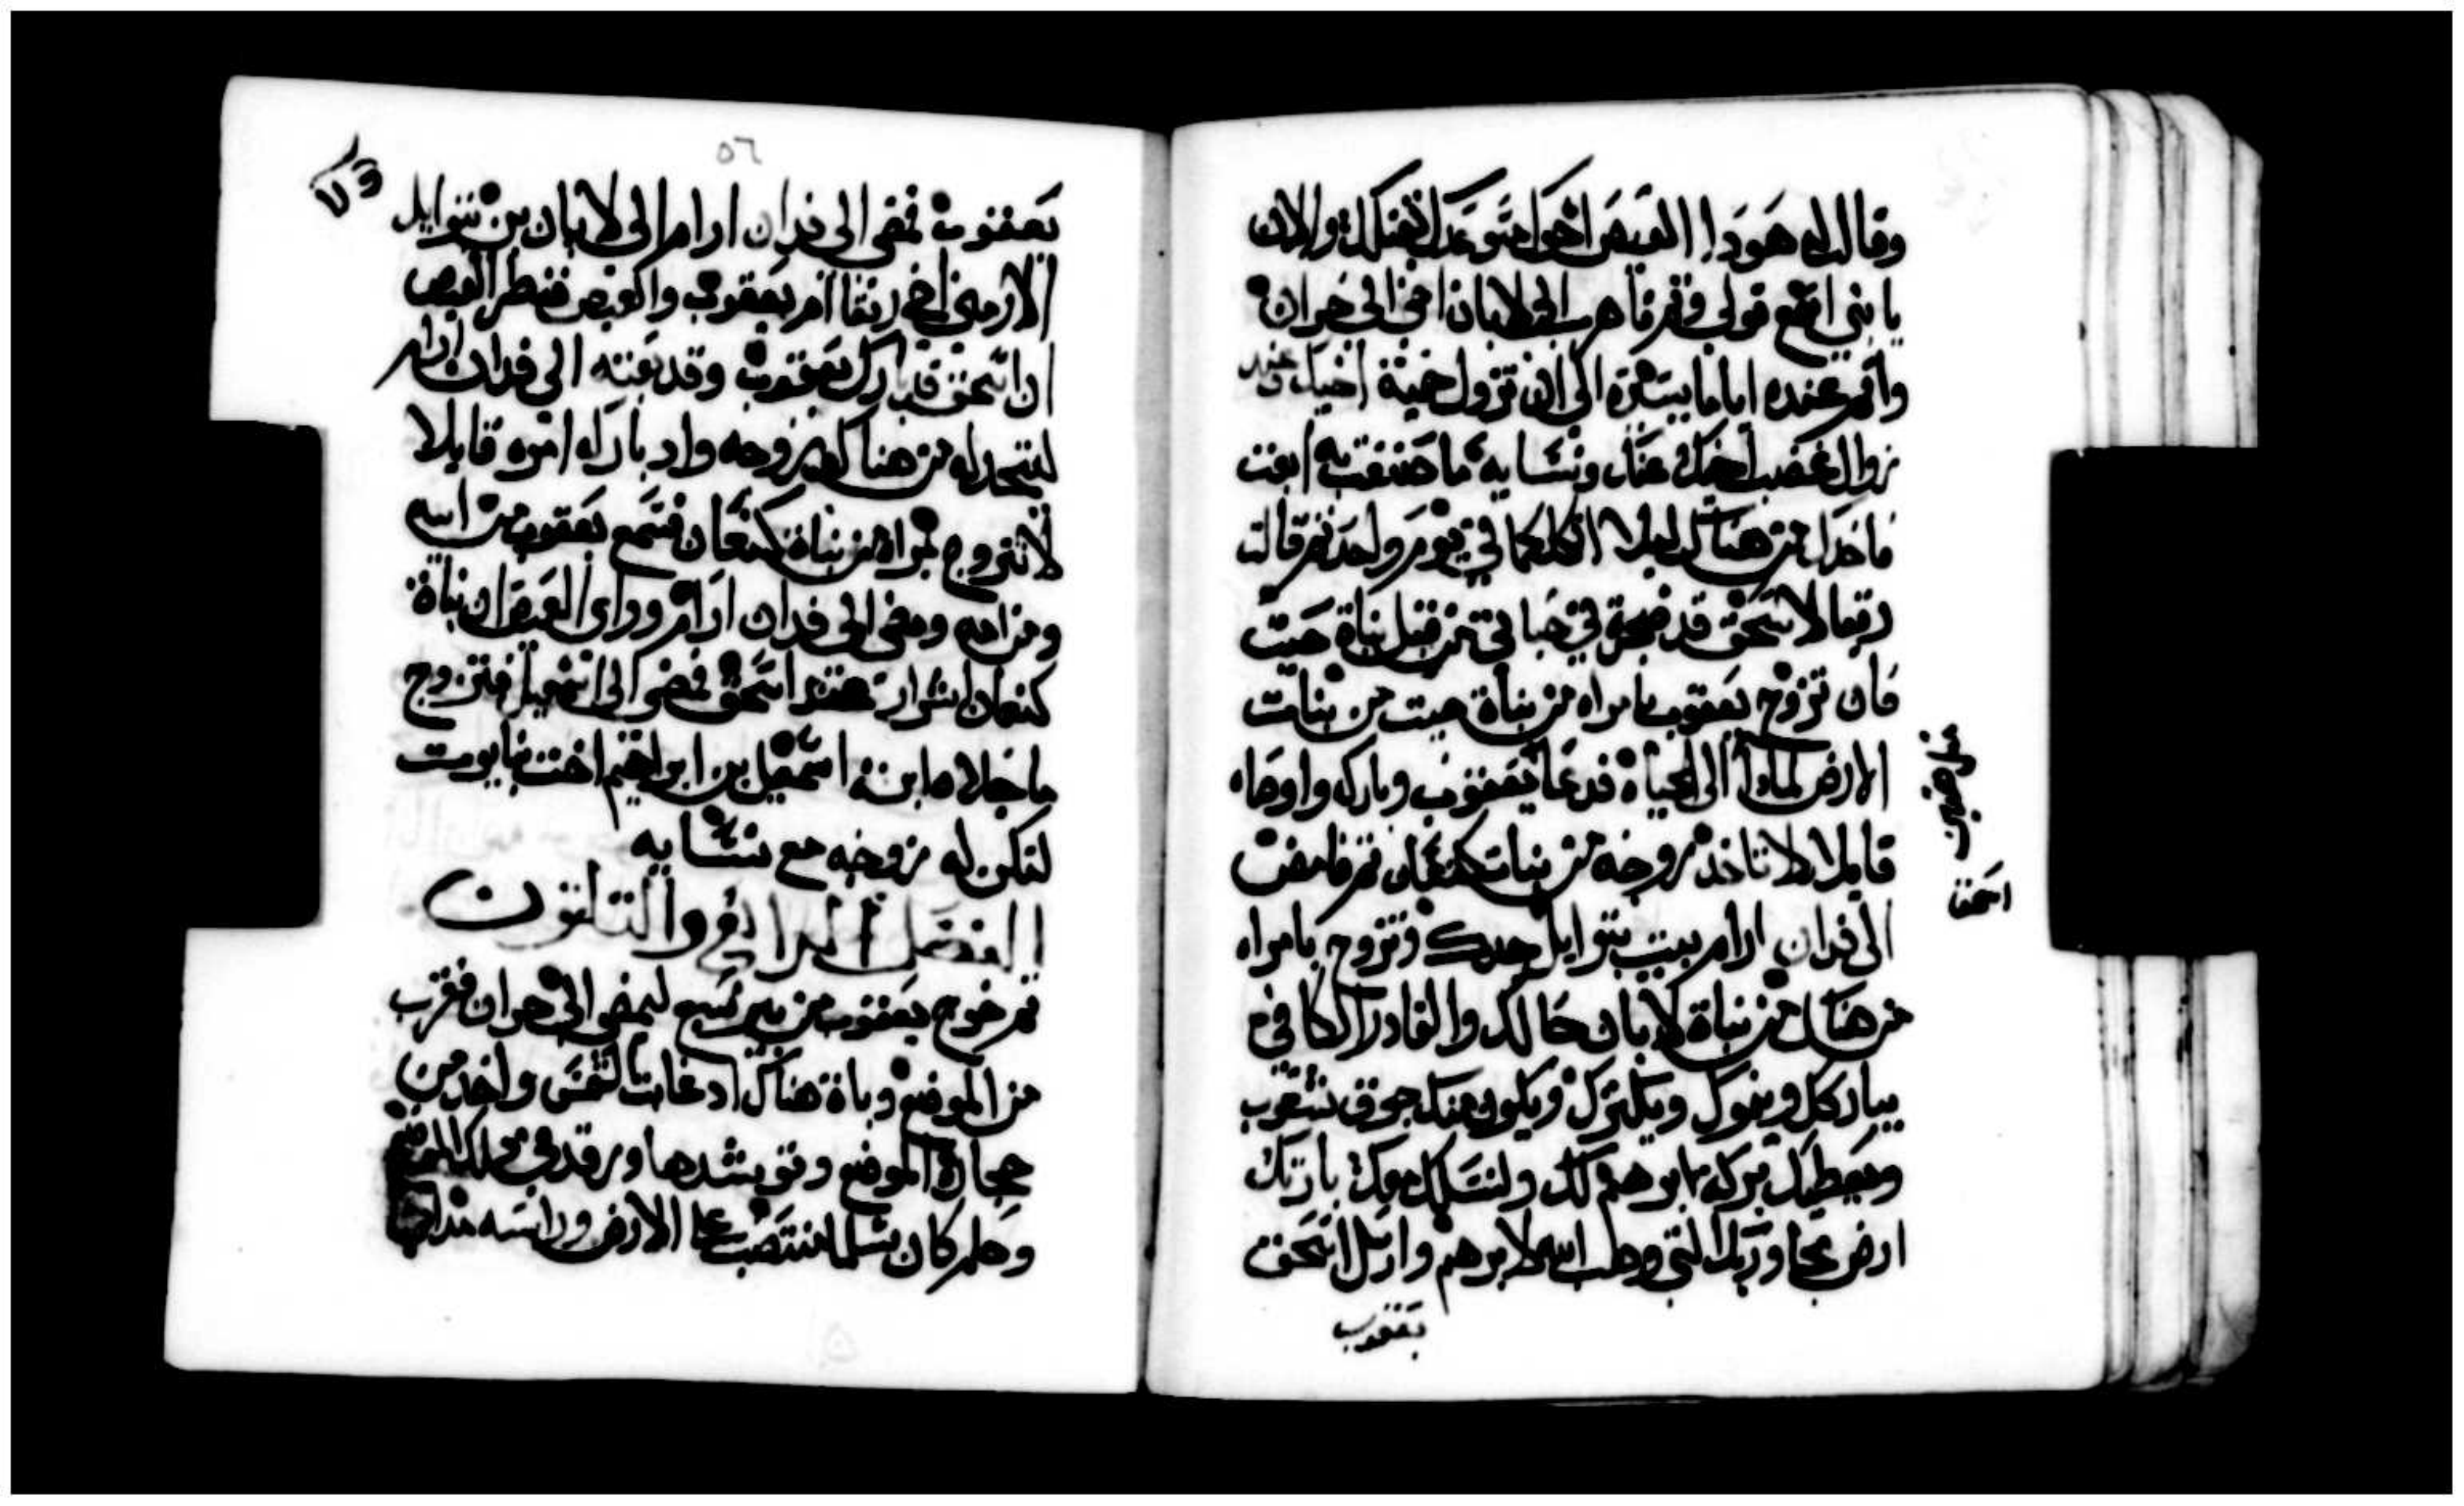 وقالت له هودا العيص اخوك متوعدك ليقتلك والان
يا بني اسمع قولي وقم فاهرب الى لابان اخي الى حران
واقم عنده اياما يسيرة الى ان تزول حمية اخيك وعند
زوال غضب اخيك عنك ونسايه ما صنعت به ابعت
فاخدك من هناك ليلا اتكلكما في يوم واحد تم قالت
رفقا لاسحق قد ضجرة في حياتي من قبل بناة حيت
فان تزوج يعقوب بامراه من بناة حيت من بنات
الارض لمادا لي الحياة فدعا يعقوب وباركه واوصاه
قايلا لا تاخد زوجه من بنات كنعان تم فامض
الى فدان ارام بيت بتوايل جدك وتزوج بامراه
من هناك من بناة لابان خالك والقادر الكافي
يباركك وينموك ويكترك ويكون منك جوق شعوب
ويعطيك بركه ابرهيم لك ولنسلك معك بارتك
ارض مجاورتك التي وهب الله لابرهيم وارسل اسحق
يعقوب
اسحق
٥٦
يعقوب فمضى الى فدان ارام الى لابان بن بتوايل
الارمني اخي رفقا ام يعقوب والعيص فنظر العيص
ان اسحق قد بارك يعقوب وقد بعته الى فدان ارام
ليتخد له من هناك زوجه واد باركه امره قايلا
لا تتزوج مراه من بناة كنعان فسمع يعقوب من ابيه
ومن امه ومضى الى فدان ارام وراى العيص ان بناة
كنعان اشرار عند اسحق فمضى الى اسمعيل فتزوج
ماحلاه ابنة اسمعيل بن ابراهيم اخت نبايوت
لتكن له زوجه مع نسايه
الفصل الرابع والتلتون
تم خرج يعقوب من بير سبع ليمضي الى حران فقرب
من الموضع وباة هناك اد غابت الشمس واخد من
حجارة الموضع وتوسدها ورقد في دلك الموضع
وحلم كان سلما منتصب على الارض وراسه